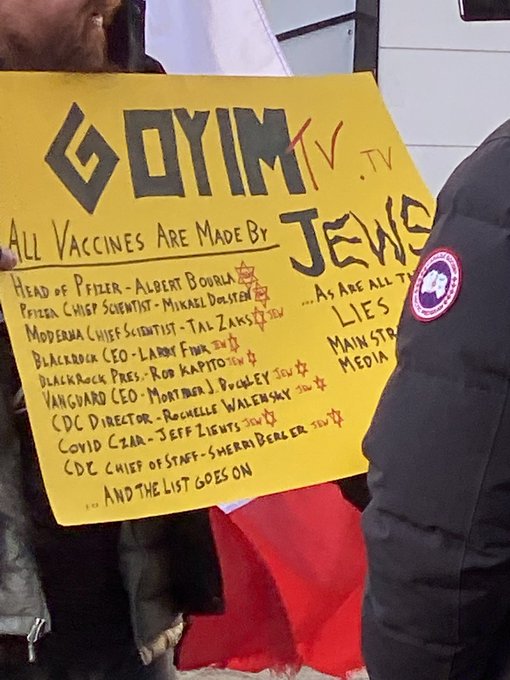 GOYIM TV.TV
ALL VACCINES ARE MADE BY JEWS
HEAD OF PFIZER - ALBERT BOURLA
PFIZER CHIEF SCIENTIST - MIKAEL DOLSTEN
MODERNA CHIEF SCIENTIST - TAL ZAKS JEW
BLACKROCK CEO - LARRY FINK JEW
BLACKROCK PRES. - ROB KAPITO JEW
VANGUARD CEO - MORTIMER J. BUCKLEY JEW
CDC DIRECTOR - ROCHELLE WALENSKY JEW
COVID CZAR - JEFF ZIENTS JEW
CDC CHIEF OF STAFF - SHERRI BERGER JEW
... AND THE LIST GOES ON
... AS ARE ALL
LIES
MEDIA